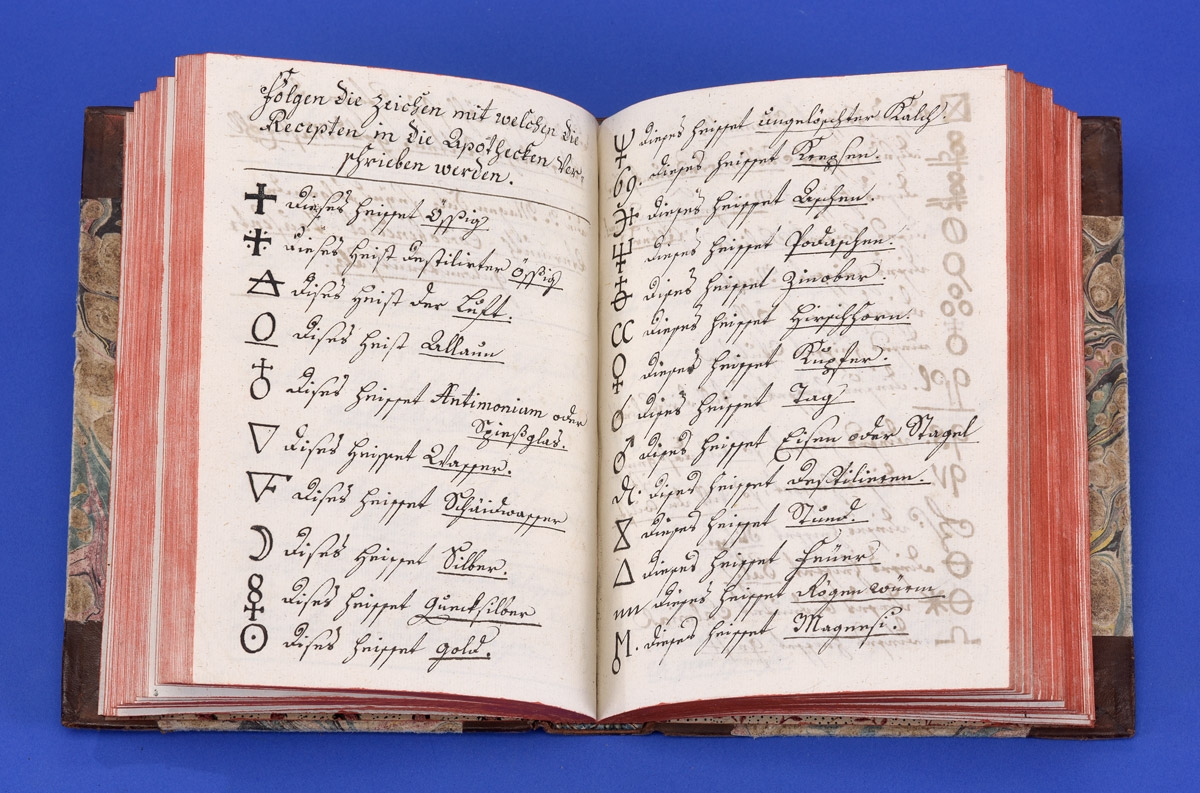 Folgen die zeichen mit welchen die
Recepten in die Apothecken Ver-
schrieben werden.
dieses heisset Össig
dieses heist destilirter Össig
dises heist der Luft.
dises heist Allaun
dises heisset Antimonium oder
Spiesglas.
dises heisset Wasser.
dises heisset Schäidwasser
dises heisset Silber.
dises heisset Quecksilber
dises heisset gold.
dieses heisset ungelöschter Kalch.
69. dieses heisset Krepsen.
dieses heisset Aschen.
dieses heisset Podaschen.
dises heisset Zinober.
CC dieses heisset Hirschhorn.
dieses heisset Kupfer.
dises heisset Tag
dises heisset Eisen oder Stagel
dises heisset destilieren.
dieses heisset Stund.
dieses heisset Feüer
dieses heisset Rögenwürm
M. dieses heisset Magnesi.